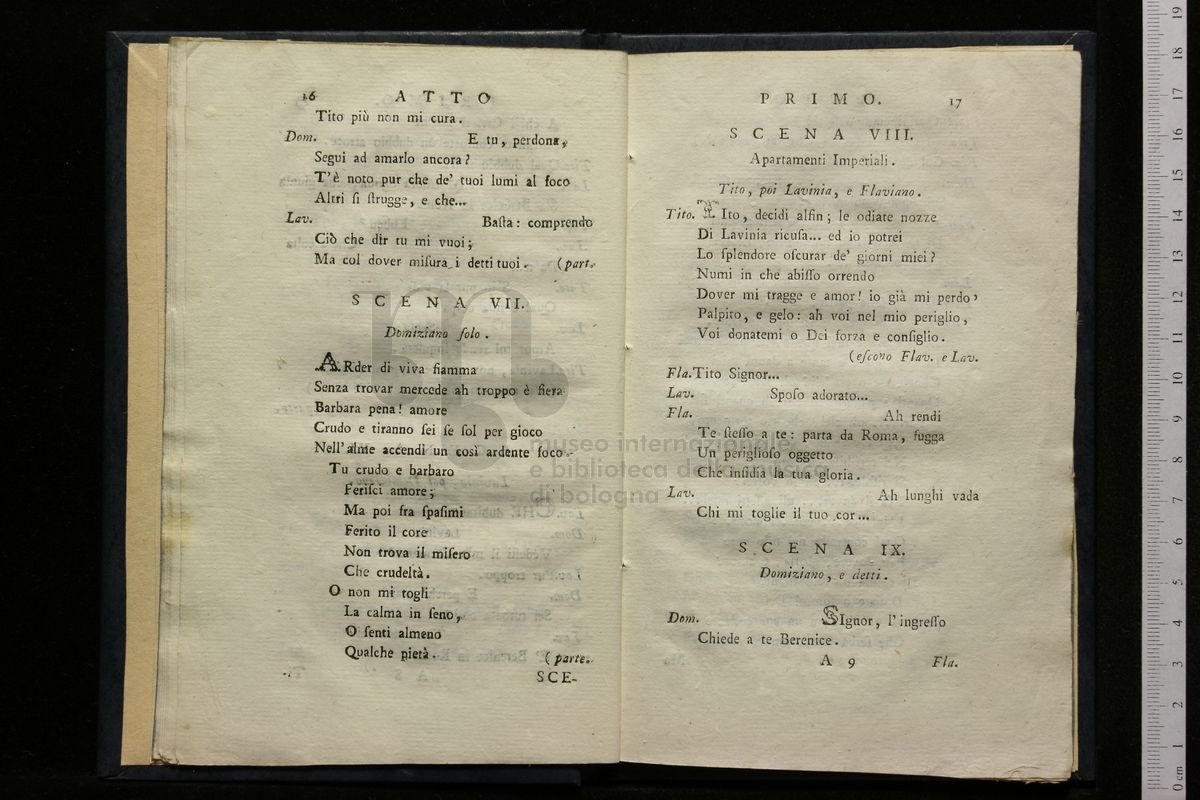 16 ATTO
Tito più non mi cura.
Dom. E tu, perdona,
Segui ad amarlo ancora?
T'è noto pur che de' tuoi lumi al foco
Altri ſi ſtrugge, e che...
Lav. Baſta: comprendo
Ciò che dir tu mi vuoi;
Ma col dover miſura i detti tuoi. (part.
SCENA VII.
Domiziano ſolo.
ARder di viva fiamma
Senza trovar mercede ah troppo è fiera
Barbara pena! amore
Crudo e tiranno ſei ſe ſol per gioco
Nell'alme accendi un così ardente foco.
Tu crudo e barbaro
Feriſci amore;
Ma poi fra ſpaſimi
Ferito il core
Non trova il miſero
Che crudeltà.
O non mi togli
La calma in ſeno,
O ſenti almeno
Qualche pietà. (parte.
SCE-
PRIMO. 17
SCENA VIII.
Apartamenti Imperiali.
Tito, poi Lavinia, e Flaviano.
Tito. TIto, decidi alfin; le odiate nozze
Di Lavinia ricuſa... ed io potrei
Lo ſplendore oſcurar de' giorni miei?
Numi in che abiſſo orrendo
Dover mi tragge e amor! io già mi perdo,
Palpito, e gelo: ah voi nel mio periglio,
Voi donatemi o Dei forza e conſiglio.
(eſcono Flav. e Lav.
Fla. Tito Signor...
Lav. Spoſo adorato...
Fla. Ah rendi
Te ſteſſo a te: parta da Roma, fugga
Un periglioſo oggetto
Che inſidia la tua gloria.
Lav. Ah lunghi vada
Chi mi toglie il tuo cor...
SCENA IX.
Domiziano, e detti.
Dom. SIgnor, l'ingreſſo
Chiede a te Berenice.
A 9 Fla.
museo internazionale
e biblioteca della musica
di bologna
0 cm 1 2 3 4 5 6 7 8 9 10 11 12 13 14 15 16 17 18 19